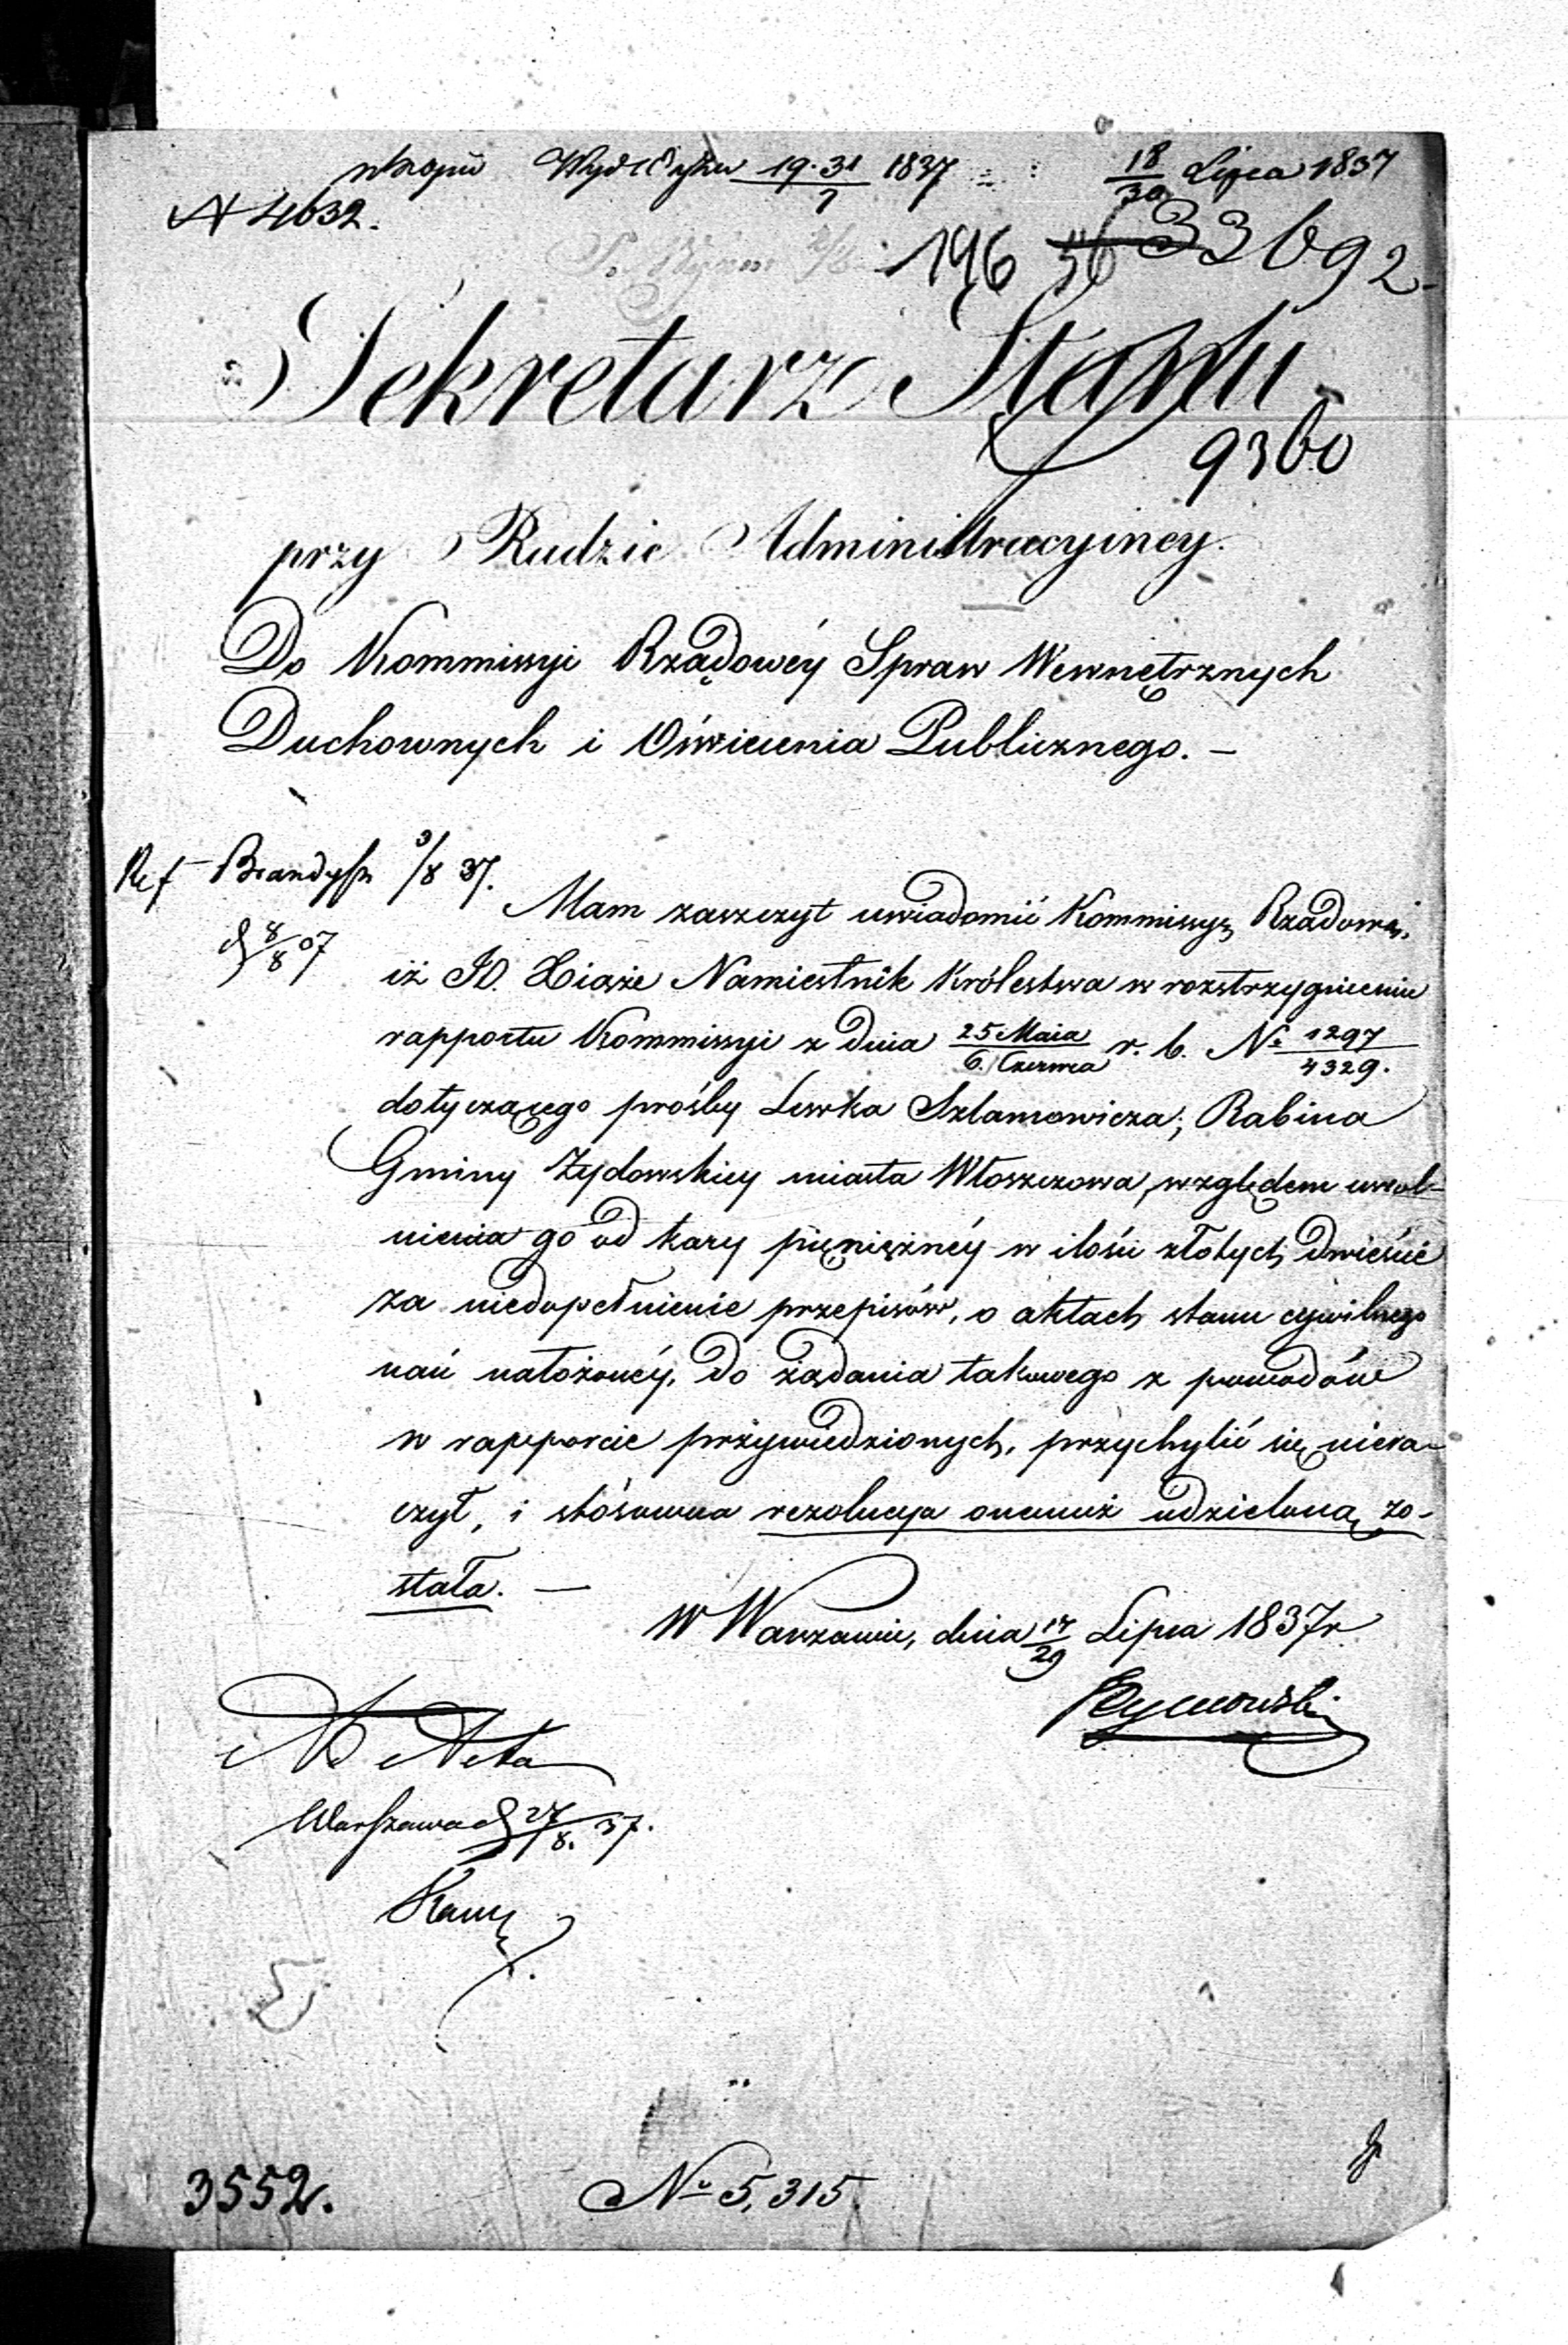 19·31/7 1837 18/30 Lipca 1837
N 4632.
196 33692
Sekretarz Stanu
9360
przy Radzie Administracyiney.
Do Kommissyi Rządowéy Spraw Wewnętrznych
Duchownych i Oświecenia Publicznego. —
Ref 3/8 37.
8/8
Mam zaszczyt uwiadomić Kommissyą Rządową,
iż JO. Xiąże Namiestnik Królestwa w rozstrzygnieniu
rapportu Kommissyi z dnia 25 Maia/6. Czerwca r. b. No 1297/4329.
dotyczącego prośby Lewka Szlamowicza, Rabina
Gminy Żydowskiey miasta Włoszczowa, względem uwol-
nienia go od kary pieniężnéy w ilości złotych dwieście
za niedopełnienie przepisów, o aktach stanu cywilnego
nań nałożonéy, do żądania takowego z powodów
w rapporcie przywiedzionych, przychylić się niera-
czył, i stósowna rezolucya onemuż udzieloną zo-
stała. —
W Warszawie, dnia 17/29 Lipca 1837 r
Warszawa d 27/8. 37.
3552.
No 5,315